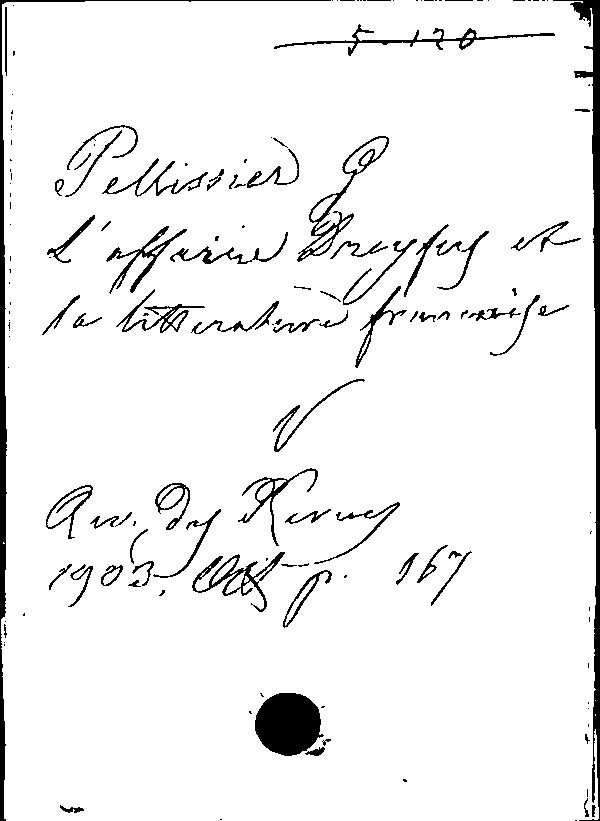 5.120
Pellissier G
L'affaire Dreyfus et
la littérature française
V
Rev. des Revues
1903, Oct p. 167